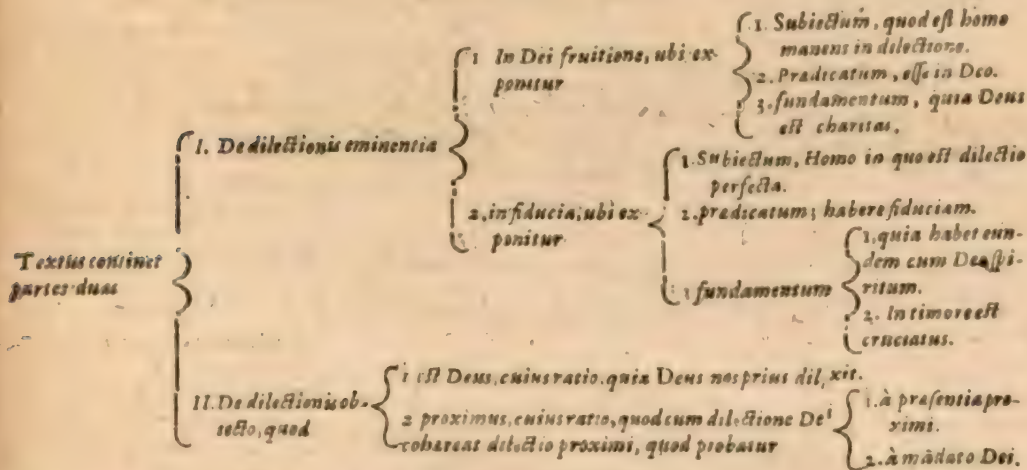 Textus continet
partes duas
I. De dilectionis eminentia
1 In Dei fruitione, ubi ex-
ponitur
1. Subiectum, quod est homo
manens in dilectione.
2. Prædicatum, esse in Deo.
3. fundamentum, quia Deus
est charitas.
2. in fiducia, ubi ex-
ponitur
1. Subiectum, Homo in quo est dilectio
perfecta.
2. prædicatum; habere fiduciam.
3 fundamentum
1. quia habet eun-
dem cum Deo spi-
ritum.
2. In timore est
cruciatus.
II. De dilectionis ob-
iecto, quod
1 est Deus, cuius ratio. quia Deus nos prius dil, xit.
2 proximus, cuius ratio, quod cum dilectione Dei
cohæreat dilectio proximi, quod probatur
1. à præsentia pro-
ximi.
2. à mādato Dei.